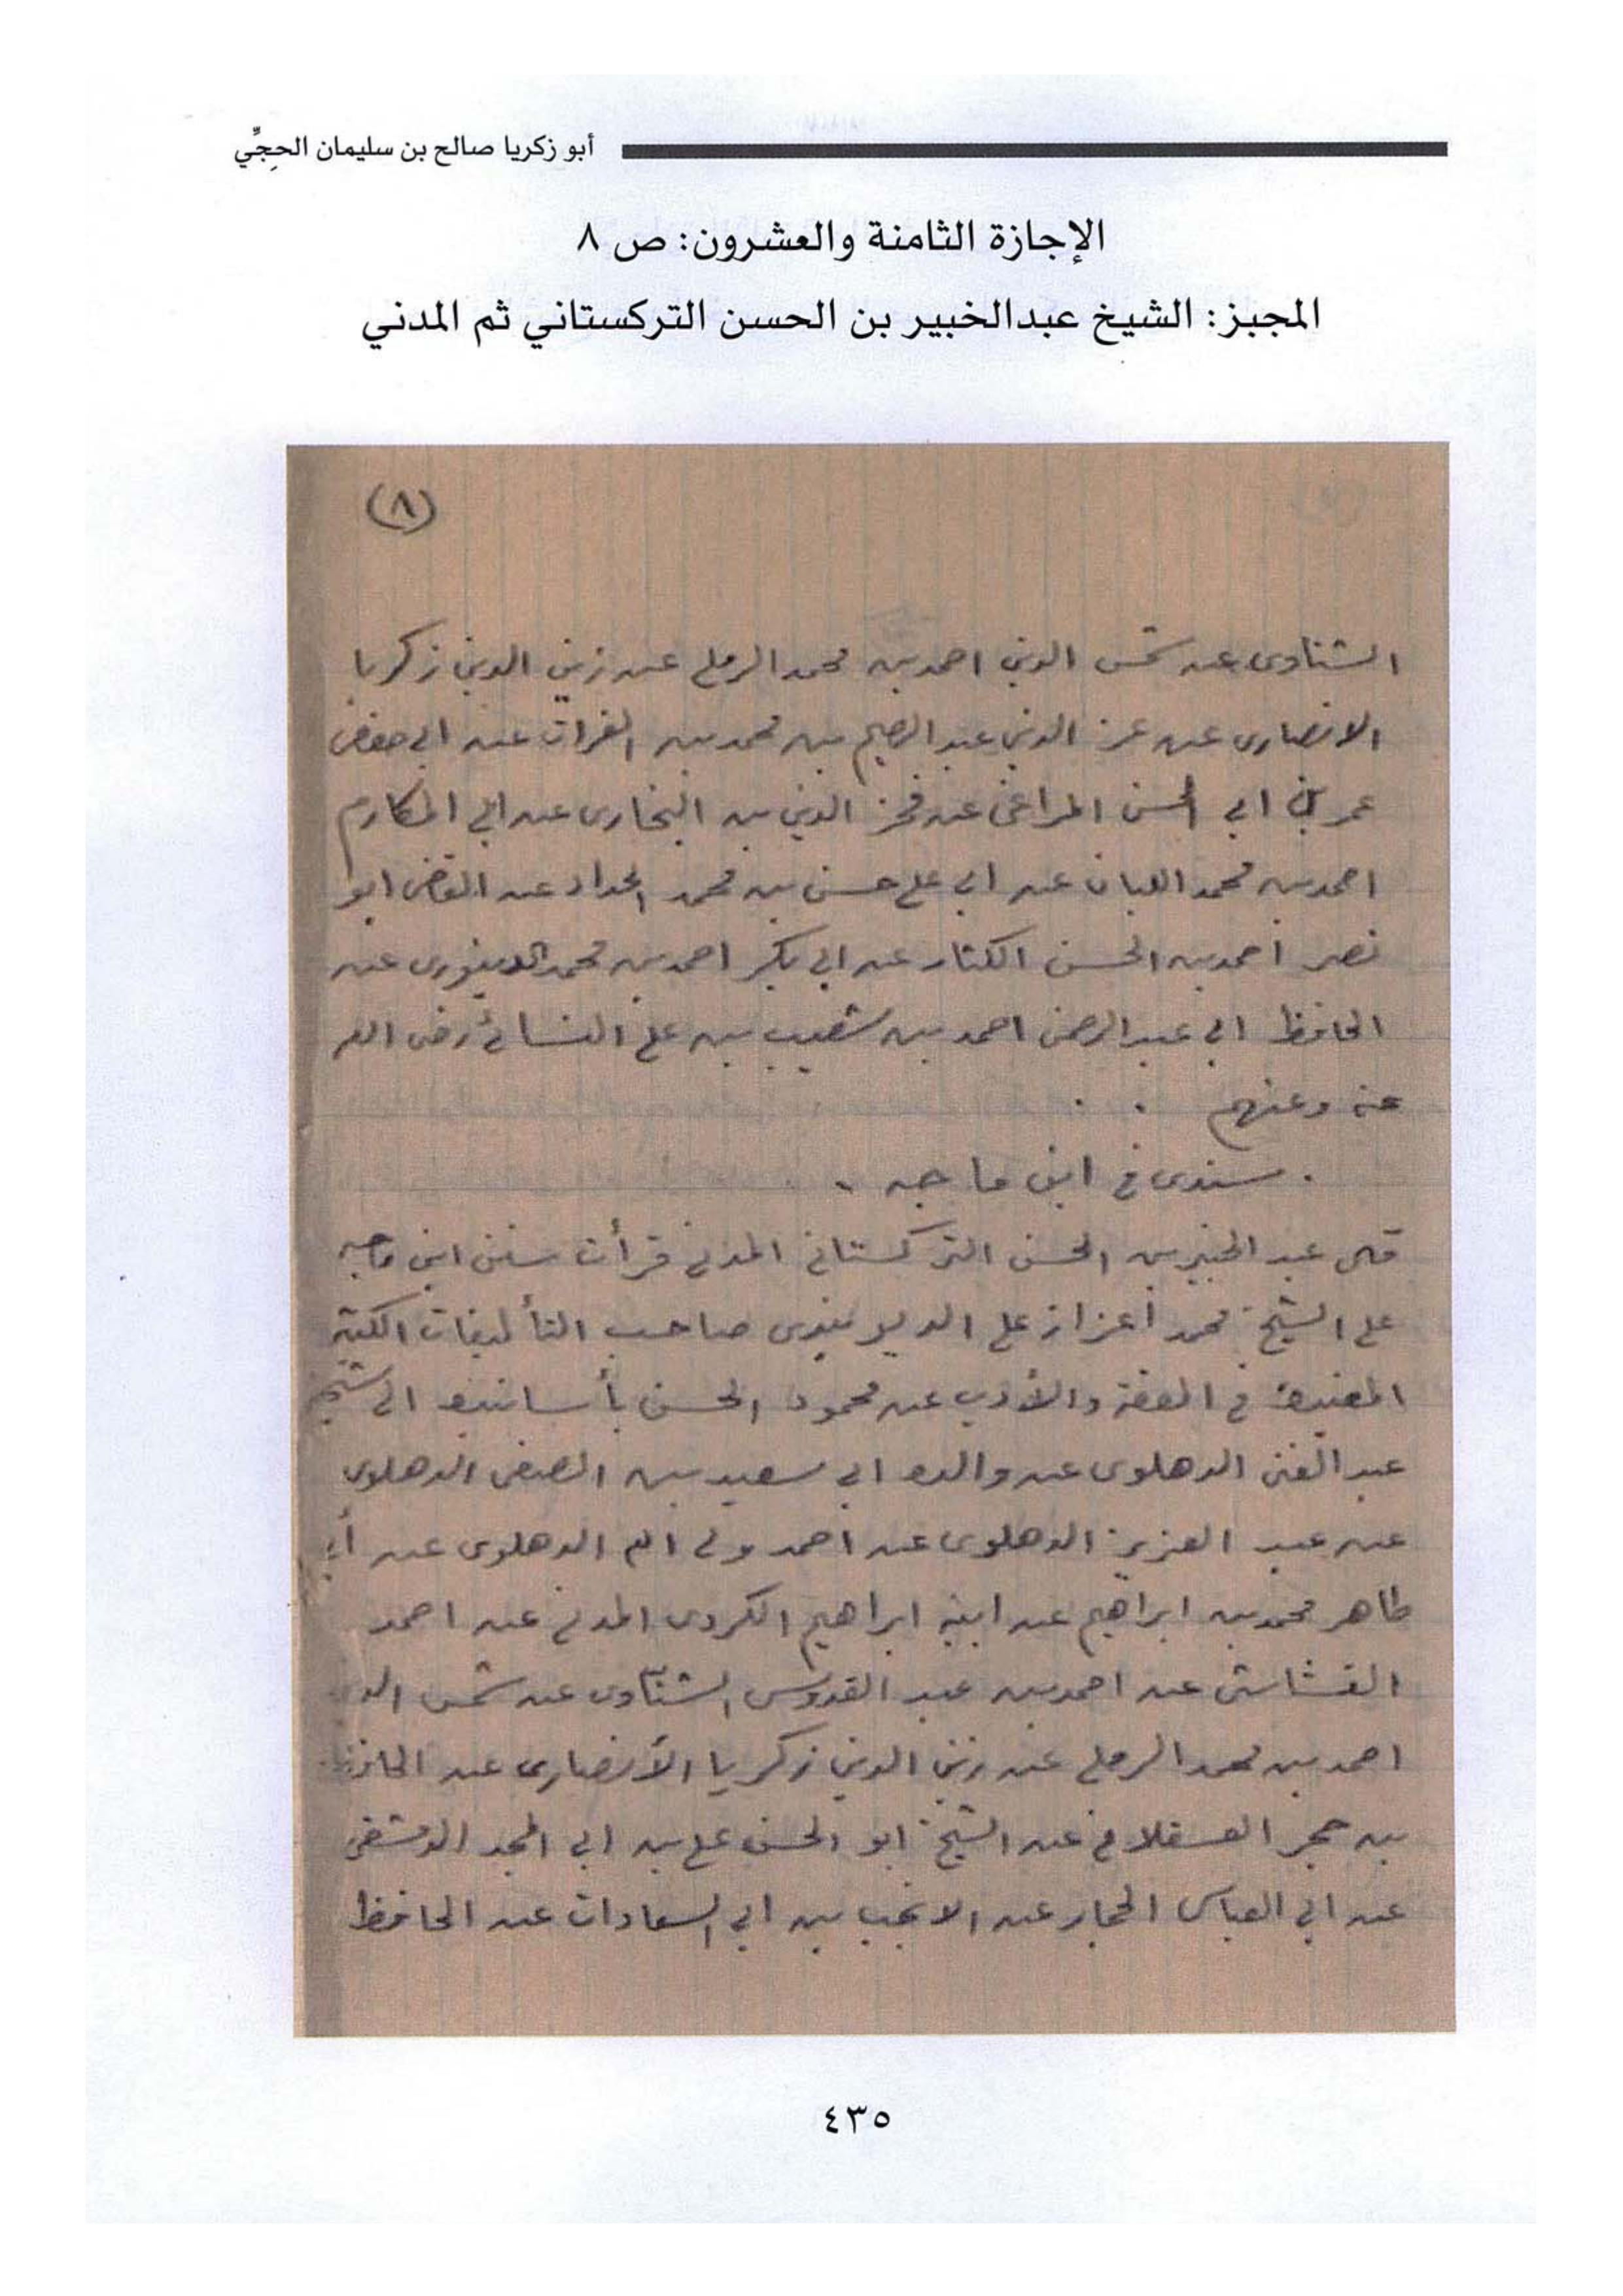 أبو زكريا صالح بن سليمان الحِجِّي
الإجازة الثامنة والعشرون: ص ٨
المجبز: الشيخ عبدالخبير بن الحسن التركستاني ثم المدني
(٨)
الشناوى عن شمس الدين احمد بن محمد الرملي عن زين الدين زكريا
الانصارى عن عز الدين عبد الرحيم بن محمد بن الفرات عن ابي حفص
عمر بن ابي الحسن المراغى عن فخر الدين بن البخارى عن ابي المكارم
احمد بن محمد اللبان عن ابي علي حسن بن محمد الحداد عن القاضى ابو
نصر احمد بن الحسن الكسار عن ابي بكر احمد بن محمد الدينورى عن
الحافظ ابي عبد الرحمن احمد بن شعيب بن علي النسائي رضى الله
عنه وعنهم . .
. سندى في ابن ماجه .
قال عبد الخبير بن الحسن التركستاني المدني قرأت سنن ابن ماجه
على الشيخ محمد أعزاز علي الديوبندى صاحب التأليفات الكثيرة
المفيدة في الفقه والأدب عن محمود الحسن بأسانيده الى الشيخ
عبد الغنى الدهلوى عن والده ابي سعيد بن الصفى الدهلوى
عن عبد العزيز الدهلوى عن احمد ولي الله الدهلوى عن أبي
طاهر محمد بن ابراهيم عن ابيه ابراهيم الكردى المدني عن احمد
القشاشى عن احمد بن عبد القدوس الشناوى عن شمس الدين
احمد بن محمد الرملي عن زين الدين زكريا الأنصارى عن الحافظ
بن حجر العسقلاني عن الشيخ ابو الحسن علي بن ابي المجد الدمشقى
عن ابي العباس الحجار عن الانجب بن ابي السعادات عن الحافظ
٤٣٥